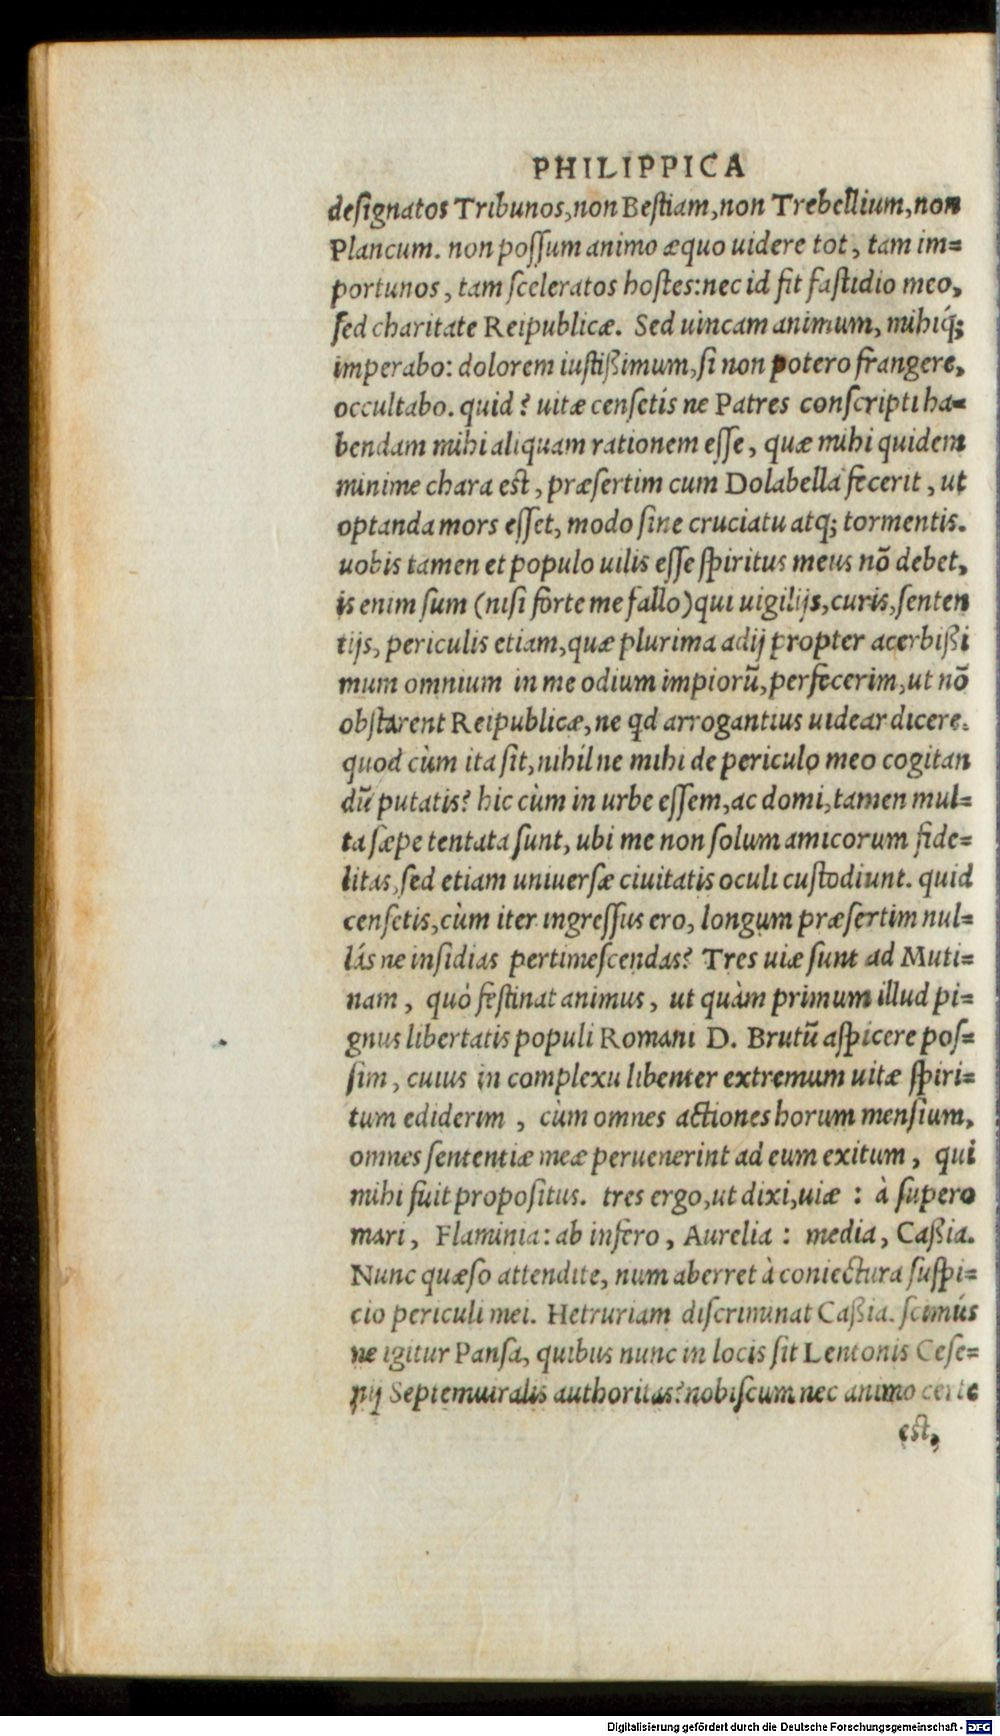 PHILIPPICA
designatos Tribunos, non Bestiam, non Trebellium, non
Plancum. non possum animo æquo uidere tot, tam im=
portunos, tam sceleratos hostes: nec id fit fastidio meo,
sed charitate Reipublicæ. Sed uincam animum, mihiq́;
imperabo: dolorem iustißimum, si non potero frangere,
occultabo. quid? uitæ censetis ne Patres conscripti ha=
bendam mihi aliquam rationem esse, quæ mihi quidem
minime chara est, præsertim cum Dolabella fecerit, ut
optanda mors esset, modo sine cruciatu atq; tormentis.
uobis tamen et populo uilis esse spiritus meus nõ debet,
is enim sum (nisi forte me fallo) qui uigilijs, curis, senten
tijs, periculis etiam, quæ plurima adij propter acerbißi
mum omnium in me odium impiorũ, perfecerim, ut nõ
obstarent Reipublicæ, ne qd arrogantius uidear dicere.
quod cùm ita sit, nihil ne mihi de periculo meo cogitan
dũ putatis? hic cùm in urbe essem, ac domi, tamen mul=
ta sæpe tentata sunt, ubi me non solum amicorum fide=
litas, sed etiam uniuersæ ciuitatis oculi custodiunt. quid
censetis, cùm iter ingressus ero, longum præsertim nul=
lás ne insidias pertimescendas? Tres uiæ sunt ad Muti=
nam, quò festinat animus, ut quàm primum illud pi=
gnus libertatis populi Romani D. Brutũ aspicere pos=
sim, cuius in complexu libenter extremum uitæ spiri=
tum ediderim, cùm omnes actiones horum mensium,
omnes sententiæ meæ peruenerint ad eum exitum, qui
mihi fuit propositus. tres ergo, ut dixi, uiæ: à supero
mari, Flaminia: ab infero, Aurelia: media, Caßia.
Nunc quæso attendite, num aberret à coniectura suspi=
cio periculi mei. Hetruriam discriminat Caßia. scimús
ne igitur Pansa, quibus nunc in locis sit Lentonis Cese=
nij Septemuiralis authoritas? nobiscum nec animo certe
est,
Digitalisierung gefördert durch die Deutsche Forschungsgemeinschaft - DFG